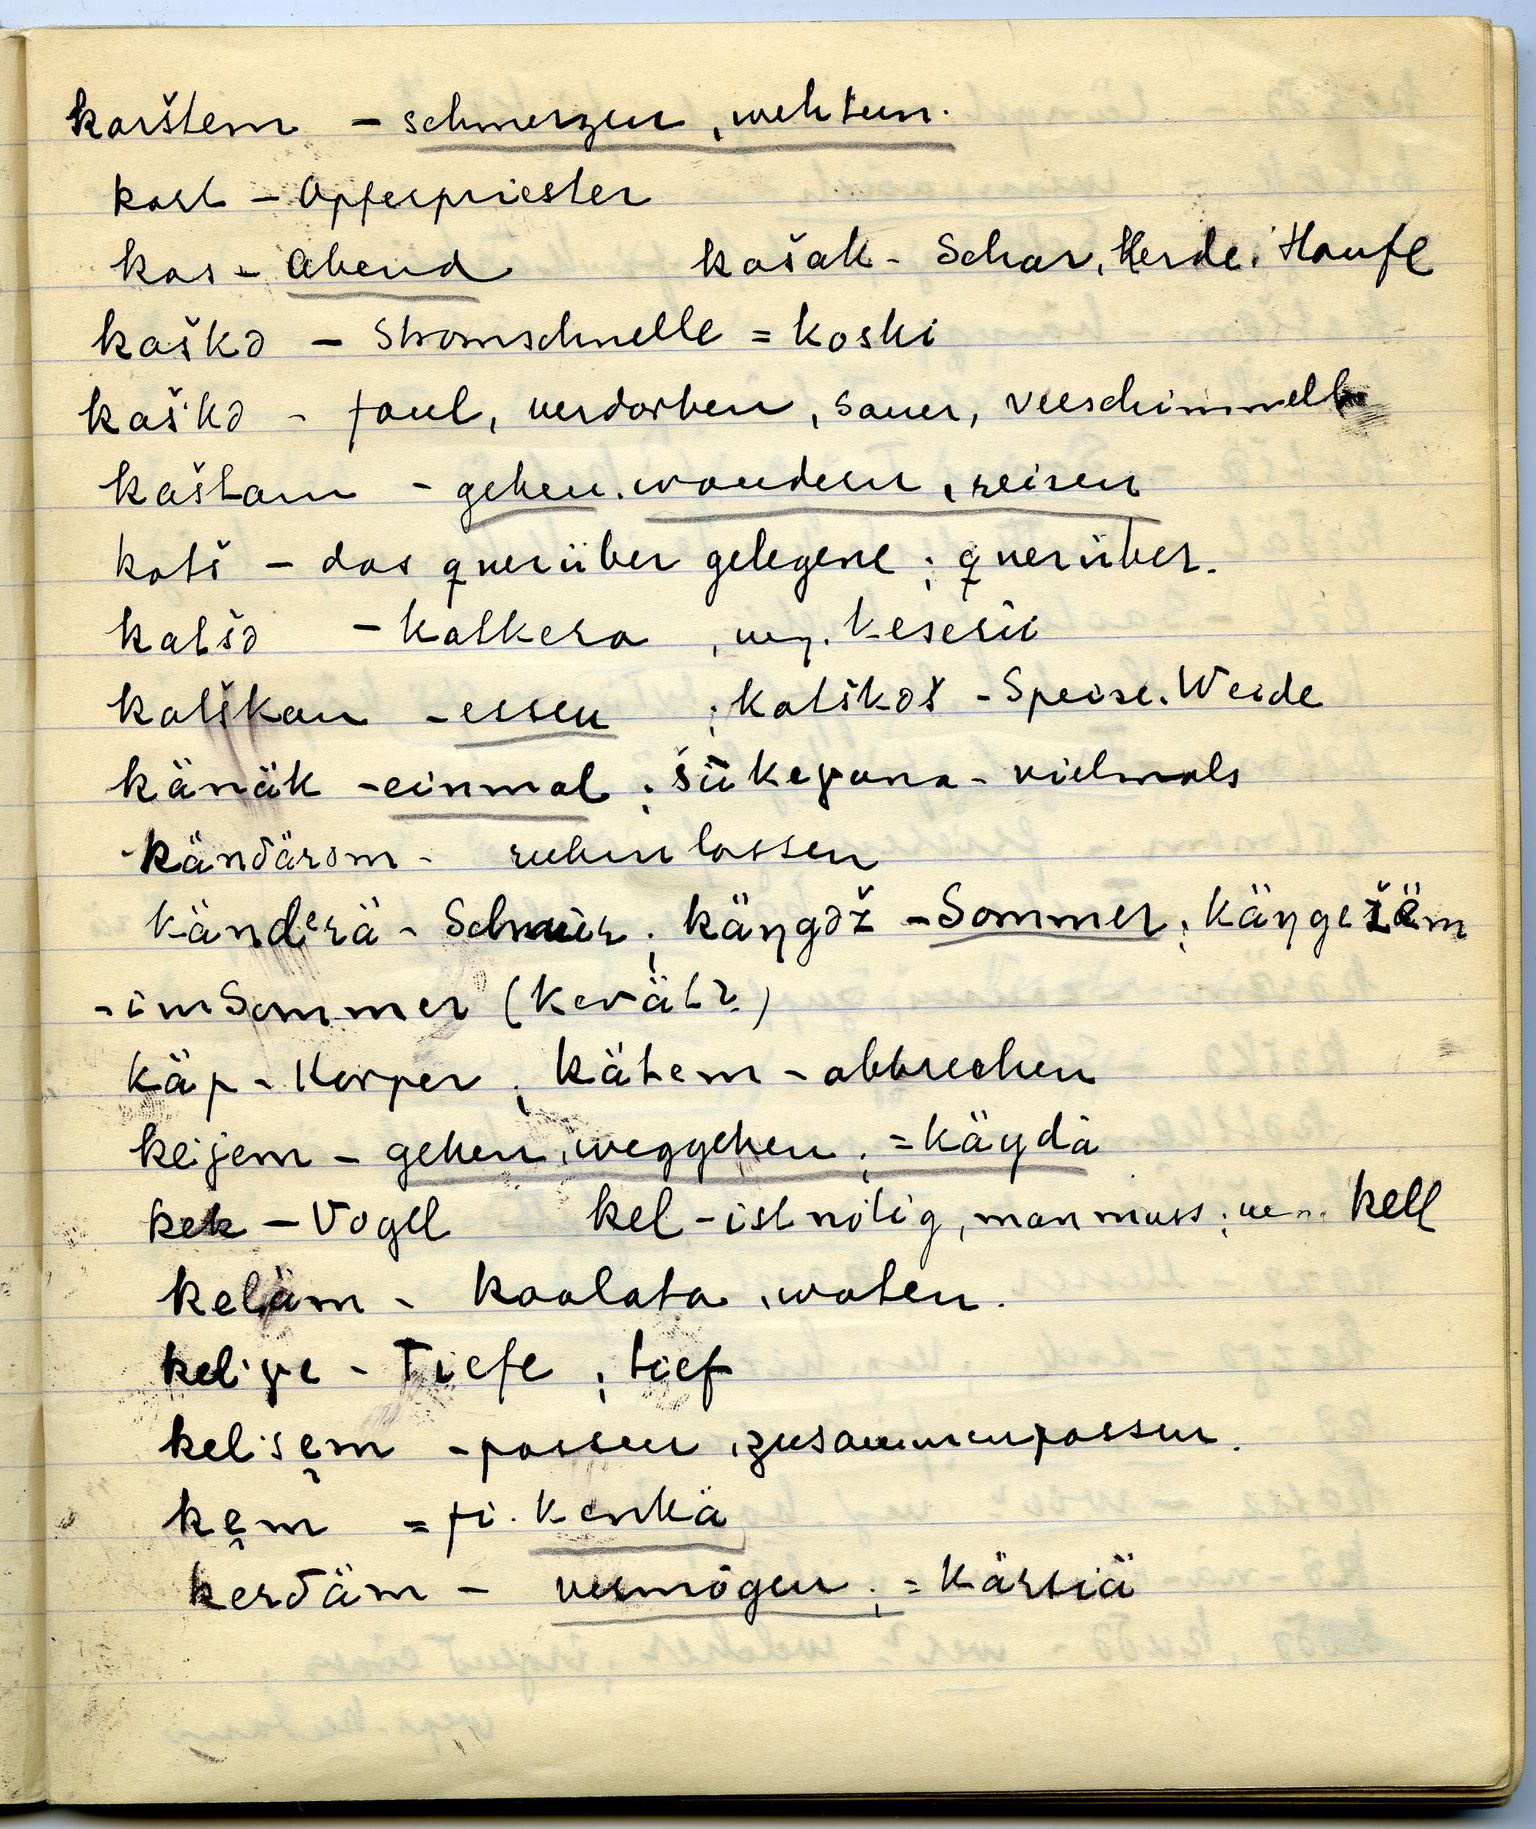 karštem – schmerzen, wehtun.
kart – Opferpriester
kas – Abend košak – Schar, Herde, Haufe
kaškə – Stromschnelle = koski
kaškə – faul, verdorben, sauer, verschimmelt
kaštam – gehen, wandern, reisen
katš – das querüber gelegene; querüber.
katšə – katkera, ung. keserü
katškam – essen ; katškəš – Speise, Weide
känäk – einmal ; šükeγana – vielmals
känδärəm – ruhen lassen
känderä – Schnur ; käŋgəž – Sommer ; käŋgežäm
– im Sommer (kevät?)
käp – Körper ; kätem – abbrechen
kejem – gehen, weggehen ; = käydä
kek – Vogel kel – ist nötig, man muss ; ung. kell
keläm – kaalata, waten.
kelγe – Tiefe ; tief
kelšem – passen, zusammenpassen.
kem = fi. kenkä
kerδäm – vermögen ; = kärsiä